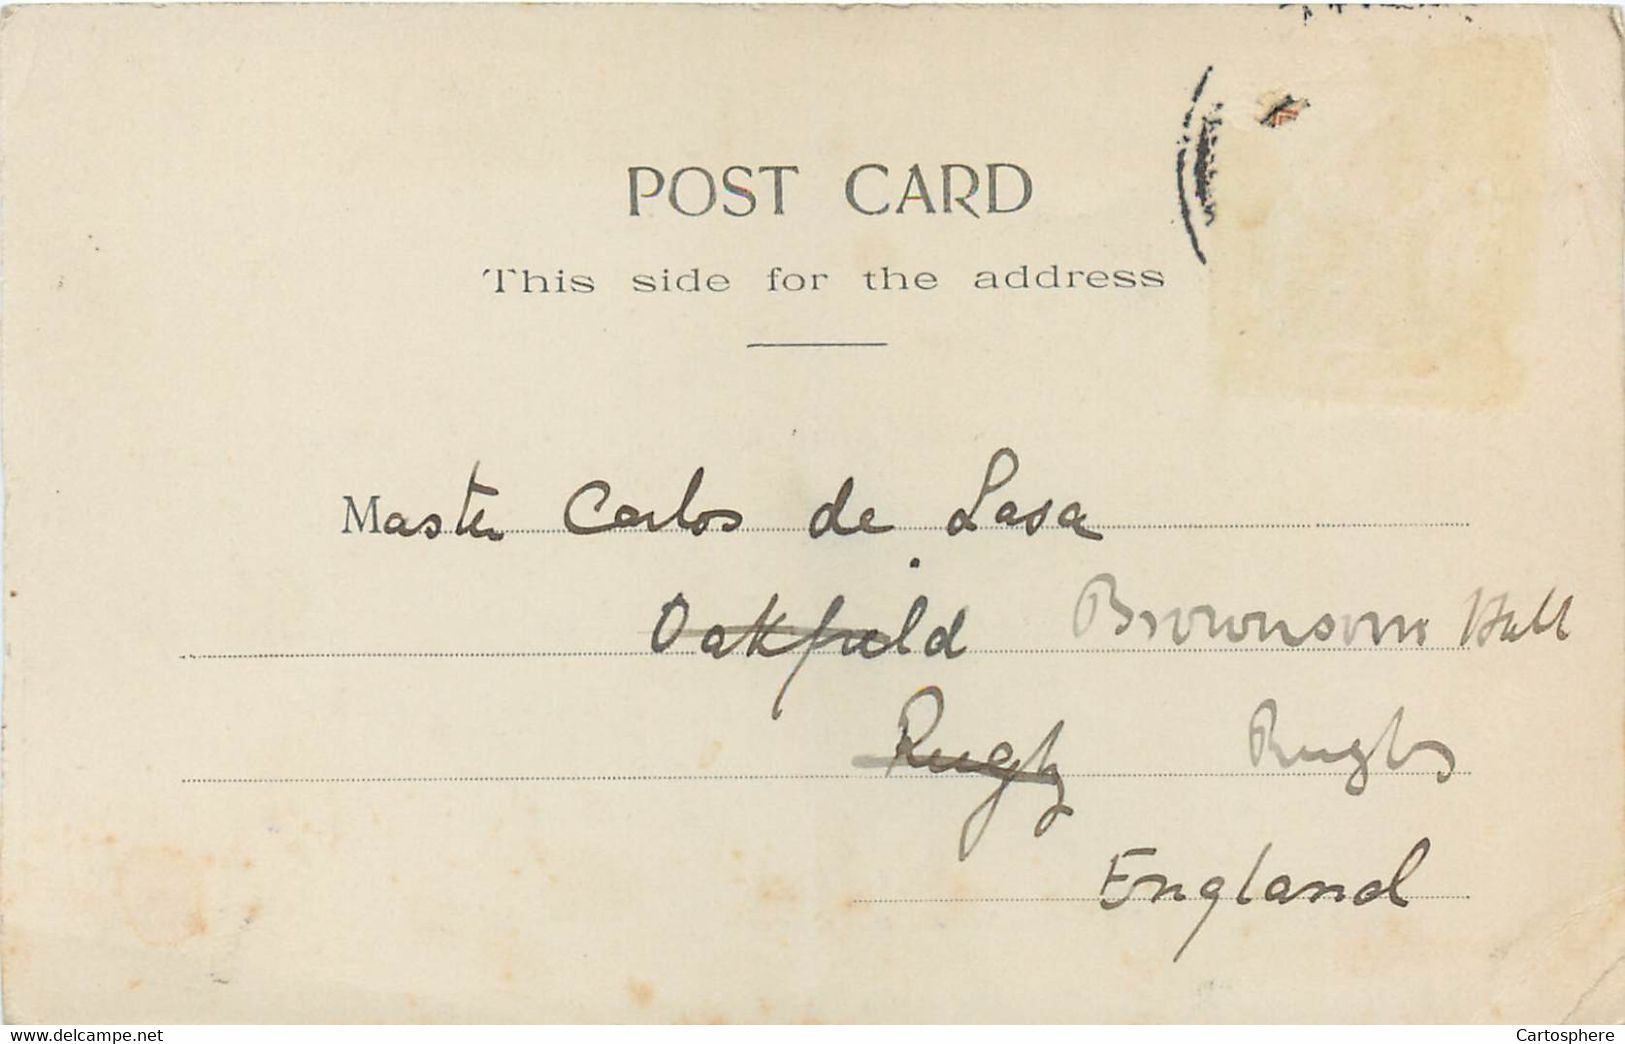 POST CARD
This side for the address
Master Carlos de Lasa
Oakfield Brownsover Hall
Rugby Rugby
England
delcampe.net
Cartosphere